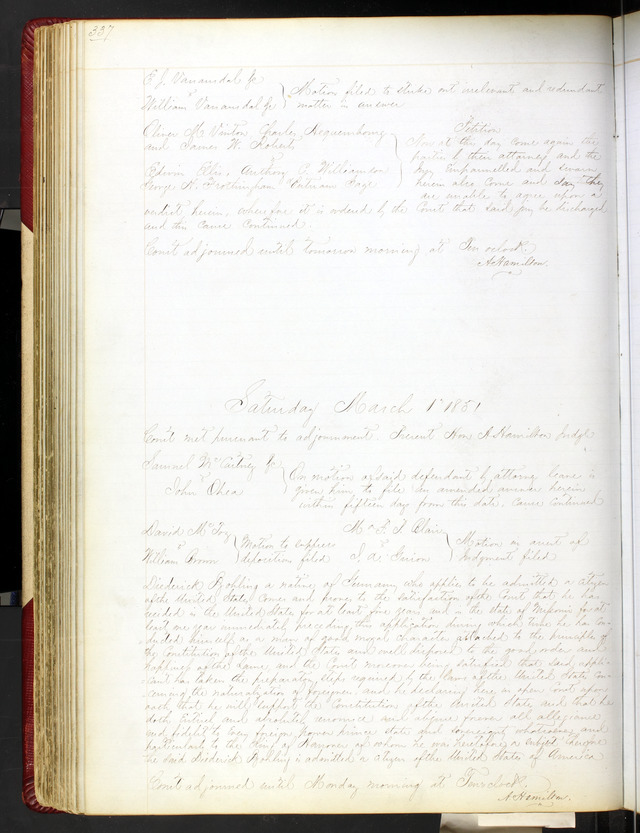 337
E. J. Vanarsdal Jr
vs
William Vanarsdal Jr } Motion filed to strike out irrelevant and redundant
matter in answer
Oliver M Vinton Charles Hequembourg
and James W. Roberts
vs
Edwin Ellis, Anthony C. Williamson
George N. Page
Petition
Now at this day come again the
parties by their attorneys and the
jury Empannelled and sworn
herein also come and say they
are unable to agree upon a
verdict herein, wherefore it is ordered by the Court that said jury be discharged
and this cause continued
Court adjourned until tomorrow morning at Ten oclock.
A Hamilton
Saturday March 1st 1851
Court met pursuant to adjournment. Present Hon A Hamilton Judge
Samuel McCartney Jr
vs
John Shea
On motion of said defendant by attorney leave is
given him to file an amended answer herein
within fifteen days from this date, cause continued
David McFoy
vs
William Brown } Motion to suppress
deposition filed
Mc & Blair
vs
S. A. Guion } Motion in arrest of
Judgment filed
Diederick Bohling a native of Germany who applies to be admitted a citizen
of the United States, Comes and proves to the satisfaction of the Court that he has
resided in the United States for at least five years and in the state of Missouri for at
least one year immediately preceding this application during which time he has con-
ducted himself as a man of good moral character attached to the principles of
the Constitution of the United States and well disposed to the good order and
happiness of the same, and the Court moreover being satisfied that said appli-
cant has taken the preparatory steps required by the laws of the United States con-
cerning the naturalization of foreigners, and he declaring here in open Court upon
oath that he will support the Constitution of the United States and that he
doth forever and absolutely renounce and abjure forever all allegiance
and fidelity to every foreign power prince state and sovereignty whatsoever and
particularly to the King of Hanover of whom he was heretofore a subject Therefore
the said Diederick Bohling is admitted a citizen of the United States of America
Court adjourned until Monday morning at Ten oclock
A Hamilton